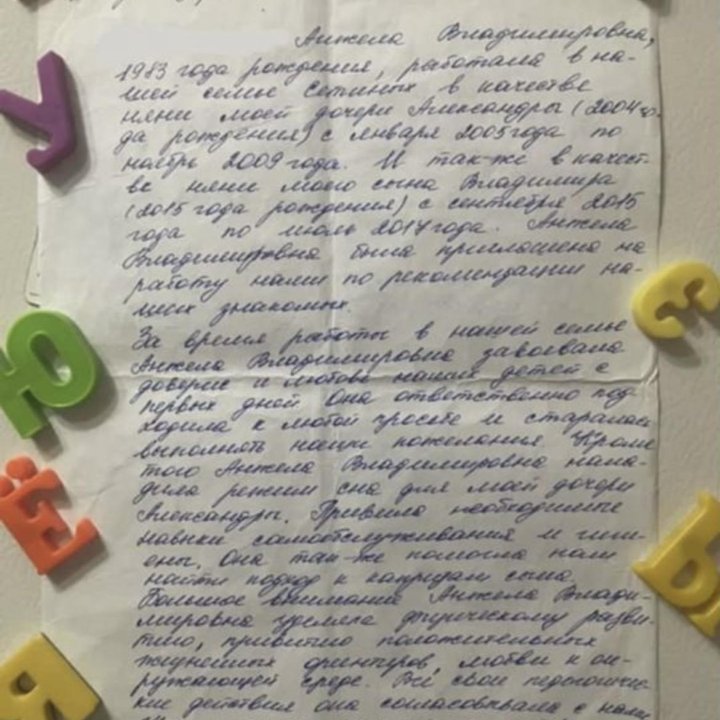 Анжела Владимировна,
1983 года рождения, работала в на-
шей семье Сетиных в качестве
няни моей дочери Александры (2004 го-
да рождения) с января 2005 года по
ноябрь 2009 года. И так-же в качест-
ве няни моего сына Владимира
(2015 года рождения) с сентября 2015
года по июль 2017 года. Анжела
Владимировна была приглашена на
работу нами по рекомендации на-
ших знакомых.
За время работы в нашей семье
Анжела Владимировна завоевала
доверие и любовь наших детей с
первых дней. Она ответственно под-
ходила к любой просьбе и старалась
выполнять наши пожелания. Кроме
того Анжела Владимировна нала-
дила режим сна для моей дочери
Александры. Привила необходимые
навыки самообслуживания и гиги-
ены. Она так-же помогла нам
найти подход к капризам сына.
Большое внимание Анжела Влади-
мировна уделяла физическому разви-
тию, привитию положительных
жизненных ориентиров, любви к ок-
ружающей среде. Все свои педагогичес-
кие действия она согласовывала с нами
У
Ю
Ё
Я
З
Ы